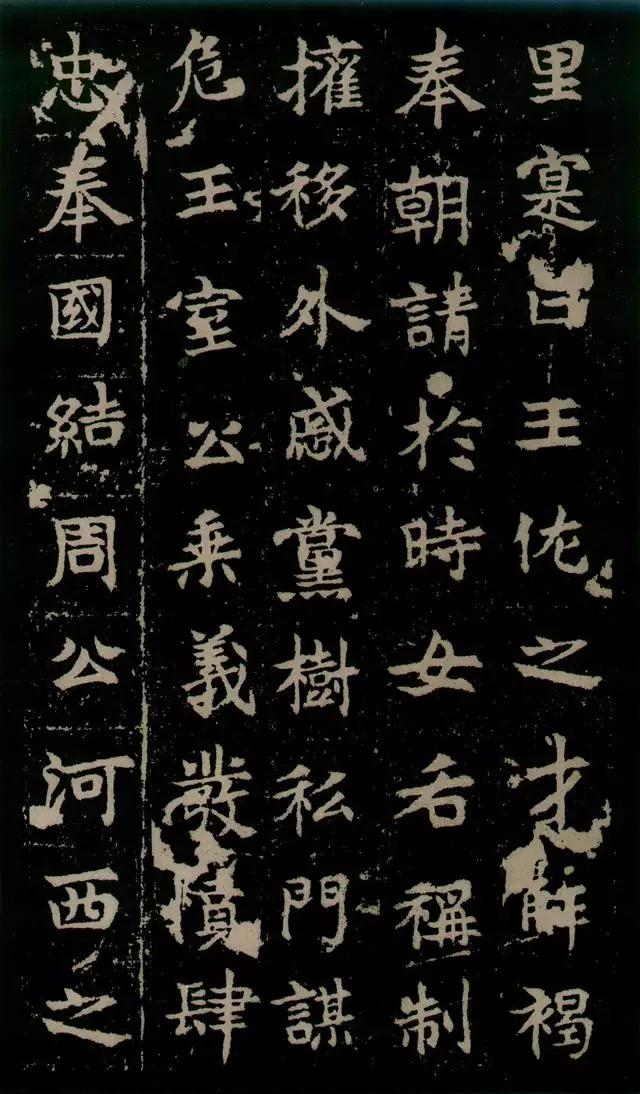 里寔曰王佐之才解褐
奉朝請於時女后稱制
權移外戚黨樹私門謀
危王室公乗義發憤肆
忠奉國結周公河西之